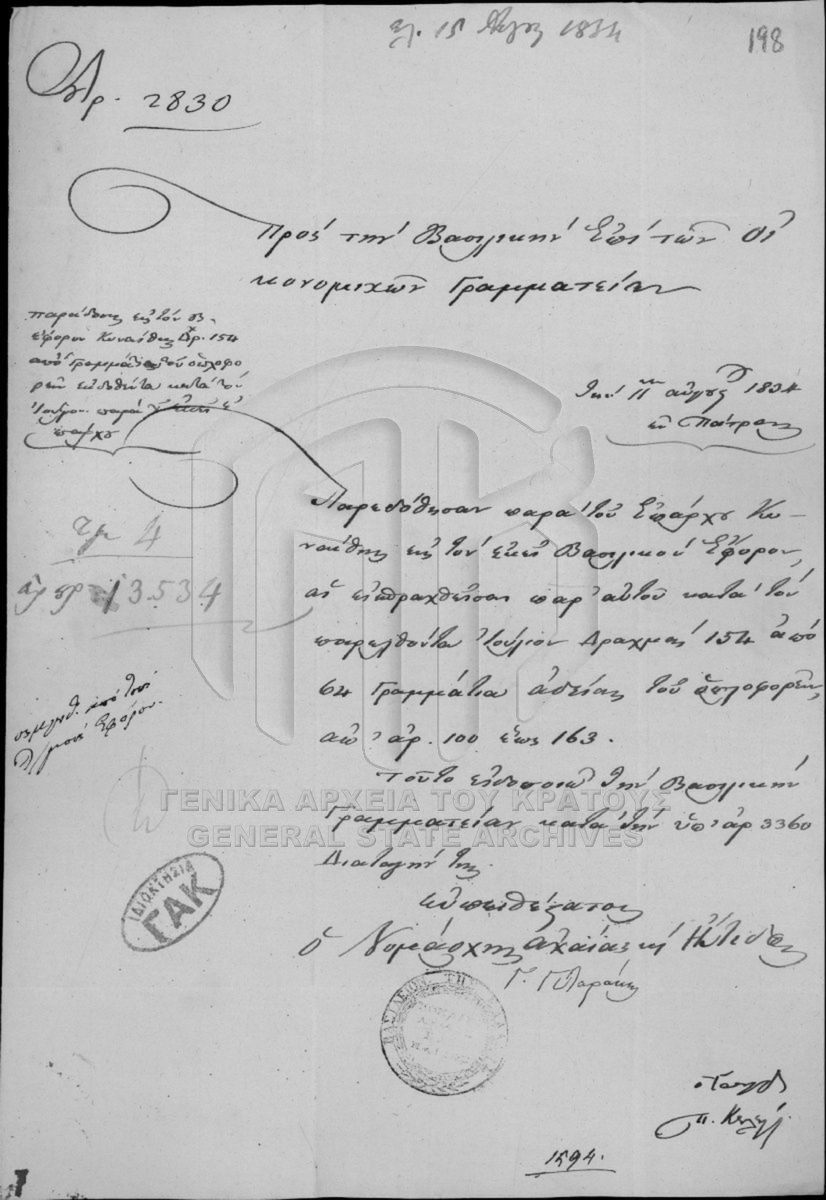 15 Αυγ 1834
198
Αρ. 2830
Προς την Βασιλικήν Επί των Οι
κονομικών Γραμματείαν
παράδοσις εις τον
έφορον Κυναίθης Δρ. 154
από Γραμμάτια του οπλοφο
ρείν εκδοθέντα κατά τον
Ιούλιον παρά του Ε
πάρχου
την 11 αυγούς 1834
εν Πάτραις
Παρεδόθησαν παρά του Επάρχου Κυ-
ναίθης εις τον εκεί Βασιλικόν Έφορον,
αι εισπραχθείσαι παρ' αυτού κατά τον
παρελθόντα Ιούλιον Δραχμαί 154 από
64 Γραμμάτια αδείας του οπλοφορείν,
από αρ. 100 έως 163.
Τούτο ειδοποιώ την Βασιλικήν
Γραμματείαν κατά την υπ' αρ 3360
Διαταγήν της
τμ 4
αρ πρ 13534
από του
Εφόρου.
ΓΕΝΙΚΑ ΑΡΧΕΙΑ ΤΟΥ ΚΡΑΤΟΥΣ
GENERAL STATE ARCHIVES
ΙΔΙΟΚΤΗΣΙΑ
ΓΑΚ
ευπειθέστατος
ο Νομάρχης Αχαΐας και Ήλιδος
Γ.
ΒΑΣΙΛΕΙΟΝ ΤΗΣ ΕΛΛΑΔΟΣ
1594.